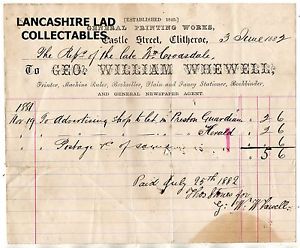 LANCASHIRE LAD
COLLECTABLES
(ESTABLISHED 1825.)
GENERAL PRINTING WORKS,
Castle Street, Clitheroe, 3 June 1882
The Reps. of the late Wm Croasdale,
To GEO. WILLIAM WHEWELL,
Printer, Machine Ruler, Bookseller, Plain and Fancy Stationer, Bookbinder,
AND GENERAL NEWSPAPER AGENT.
1881
Nov 19 To Advertising Shop to let in Preston Guardian 2 6
Herald 2 6
Postage of same 6
5 6
Paid July 25th 1882
for
G. W. Whewell